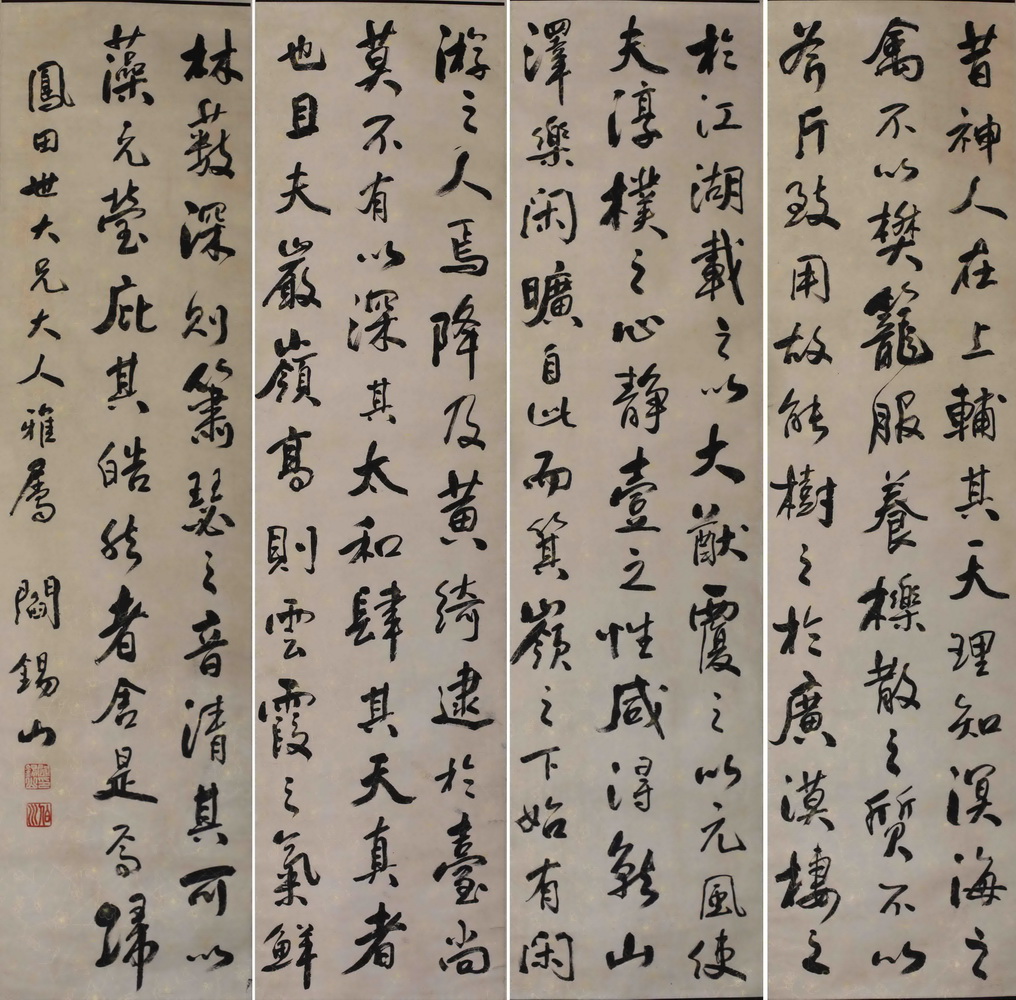 昔神人在上輔其天理知溟海之
禽不以樊籠服養櫟散之質不以
斧斤致用故能樹之於廣漠棲之
於江湖載之以大猷覆之以元風使
夫淳樸之心静壹之性咸得就山
澤樂閑曠自此而箕嶺之下始有閑
游之人焉降及黄綺逮於臺尚
莫不有以深其太和肆其天真者
也且夫巖嶺高則雲霞之氣鮮
林藪深則簫瑟之音清其可以
藻元瑩庇其皓然者舍是焉歸
鳳田世大兄大人雅屬
閻錫山